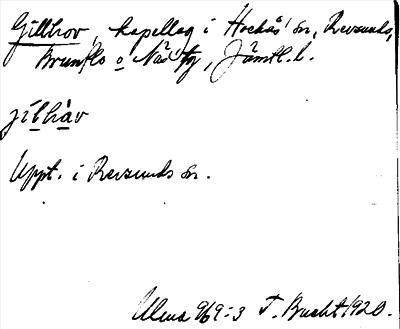 Gillhov, kapellag i Hackås sn, Revsunds,
Brunflo o Näs tg, Jämtl. l.
jílhàv
Uppt. i Revsunds sn.
Ulma 969:3 T. Bucht 1920.